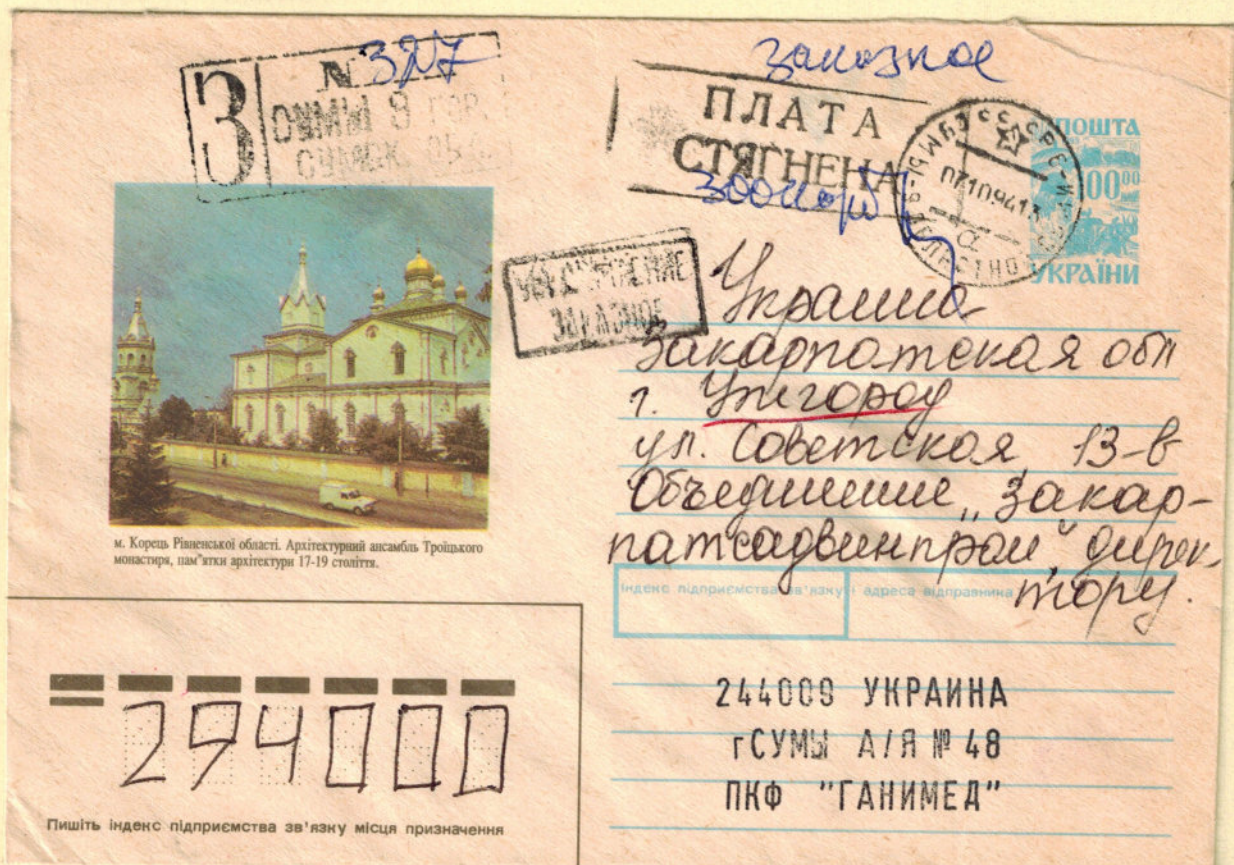 заказное
З
N 327
СУМЫ 9
ПЛАТА
СТЯГНЕНА
ПОШТА
УКРАЇНИ
07 10 94 13
ЗАКАЗНОЕ
Украина
Закарпатская обл
г. Ужгород
ул. Советская, 13-в
Объединение „Закар-
патсадвинпром" дирек-
тору.
м. Корець Рівненської області. Архітектурний ансамбль Троїцького
монастиря, пам"ятки архітектури 17-19 століття.
Індекс підприємства зв'язку і адреса відправника
244009 УКРАИНА
г СУМЫ А/Я № 48
ПКФ "ГАНИМЕД"
294000
Пишіть індекс підприємства зв'язку місця призначення